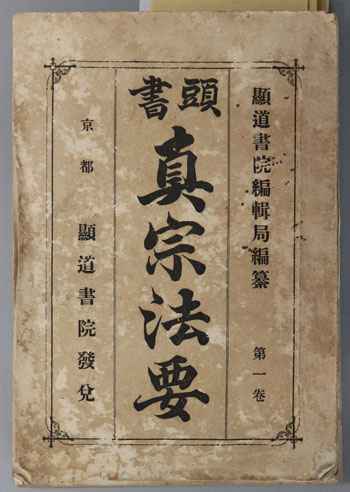 顯道書院編輯局編纂 第一卷
頭書
真宗法要
京都 顯道書院發兌